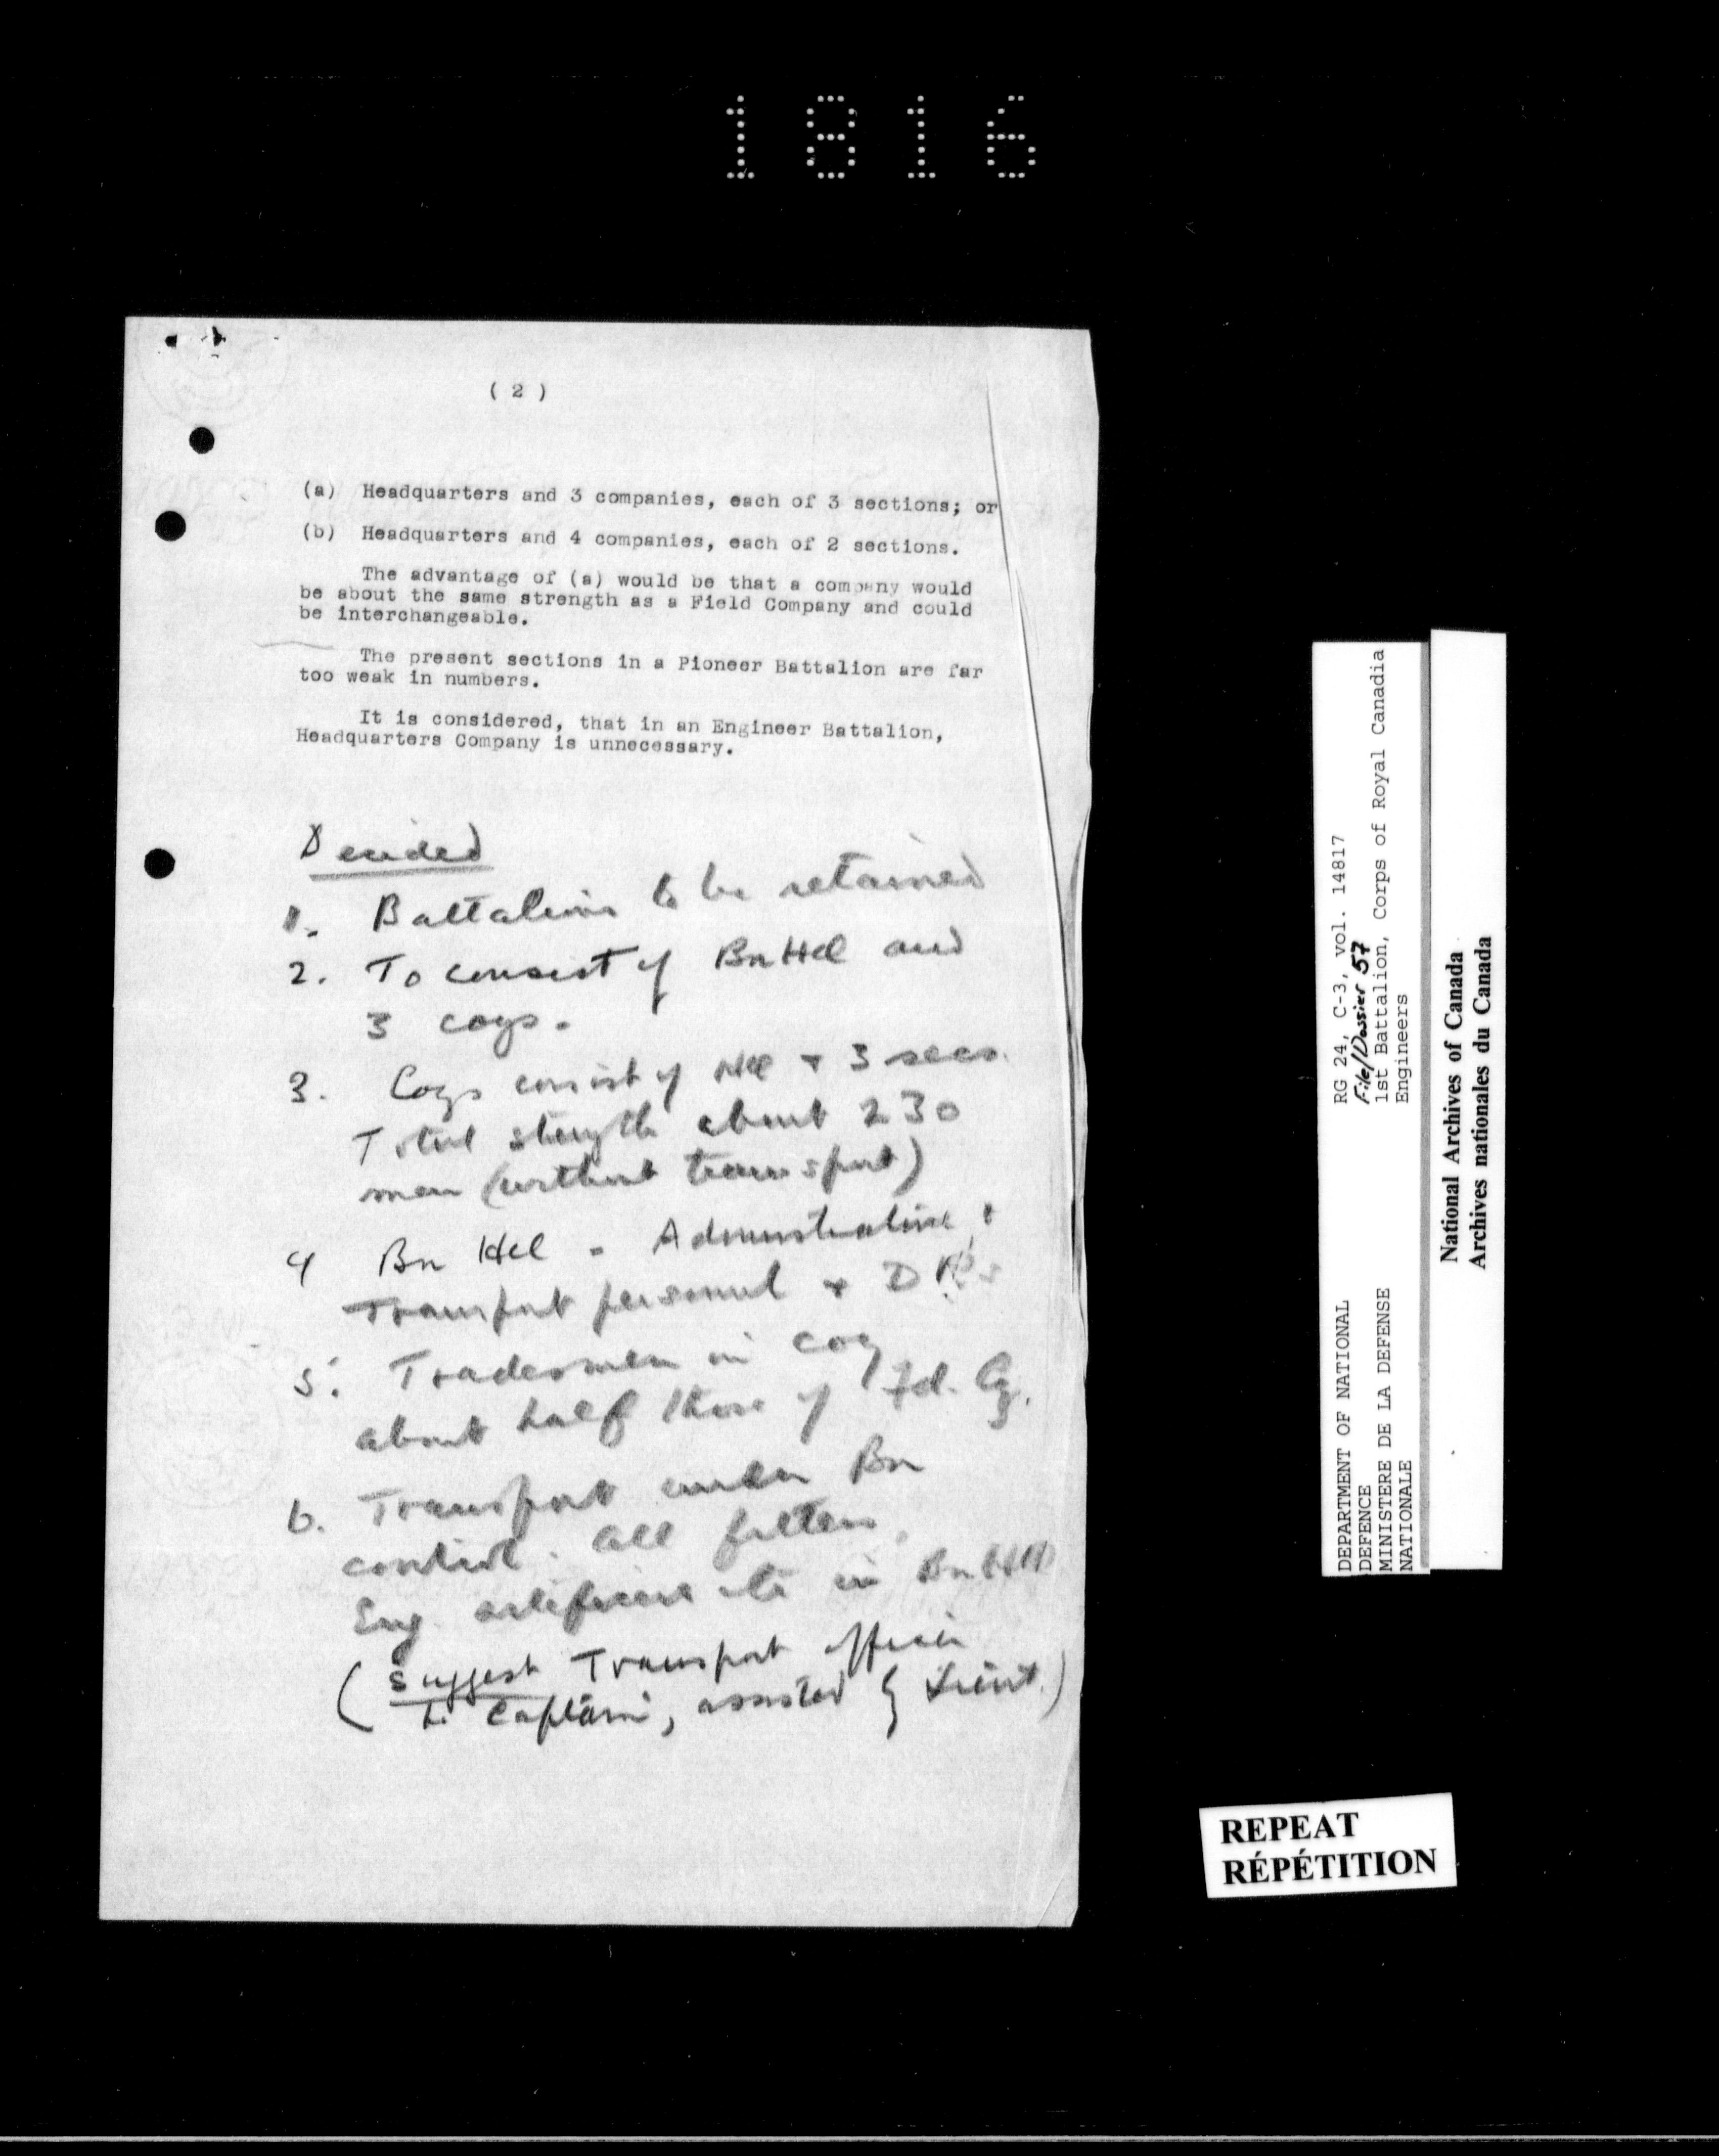 1816
( 2 )
(a) Headquarters and 3 companies, each of 3 sections; or
(b) Headquarters and 4 companies, each of 2 sections.
The advantage of (a) would be that a company would
be about the same strength as a Field Company and could
be interchangeable.
The present sections in a Pioneer Battalion are far
too weak in numbers.
It is considered, that in an Engineer Battalion,
Headquarters Company is unnecessary.
Decided
1. Battalions to be retained
2. To consist of Bn Hd and
3 coys.
3. Coys consist of Hd + 3 secs.
Total strength about 230
men (without transport)
4 Bn Hd - Administrative +
Transport personnel + D Rs
5. Tradesmen in coy
about half those of Fd. Cy.
6. Transport under Bn
control. All fitters,
Eng. artificers etc in Bn Hd
(Suggest Transport officer
is Captain, assisted by Lieut.)
RG 24, C-3, vol. 14817
File/Dossier 57
1st Battalion, Corps of Royal Canadia
Engineers
DEPARTMENT OF NATIONAL
DEFENCE
MINISTERE DE LA DEFENSE
NATIONALE
National Archives of Canada
Archives nationales du Canada
REPEAT
RÉPÉTITION